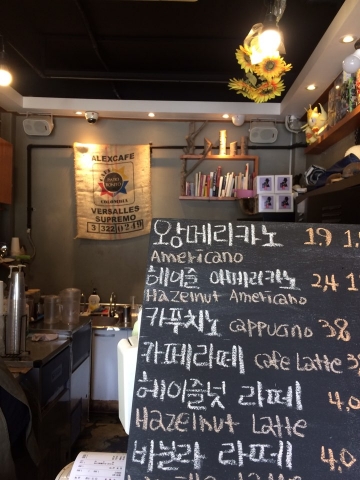 ALEXCAFE
COLOMBIA
VERSALLES
SUPREMO
3 322 0249
왕메리카노 1.9
Americano
헤이즐 아메리카노 2,4
Hazelnut Americano
카푸치노 cappucino 3.8
카페라떼 cafe Latte
헤이즐넛 라떼 4.0
Hazelnut Latte
바닐라 라떼 4.0